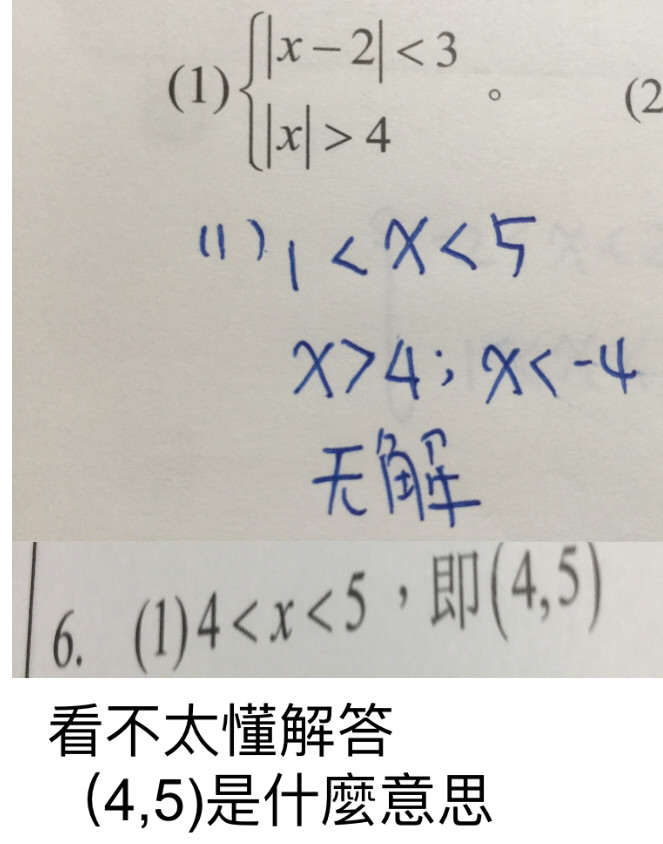 (1) { |x − 2| < 3 。 (2
|x| > 4
(1) 1 < x < 5
x > 4 ; x < -4
无解
6. (1) 4 < x < 5,即(4,5)
看不太懂解答
(4,5)是什麼意思